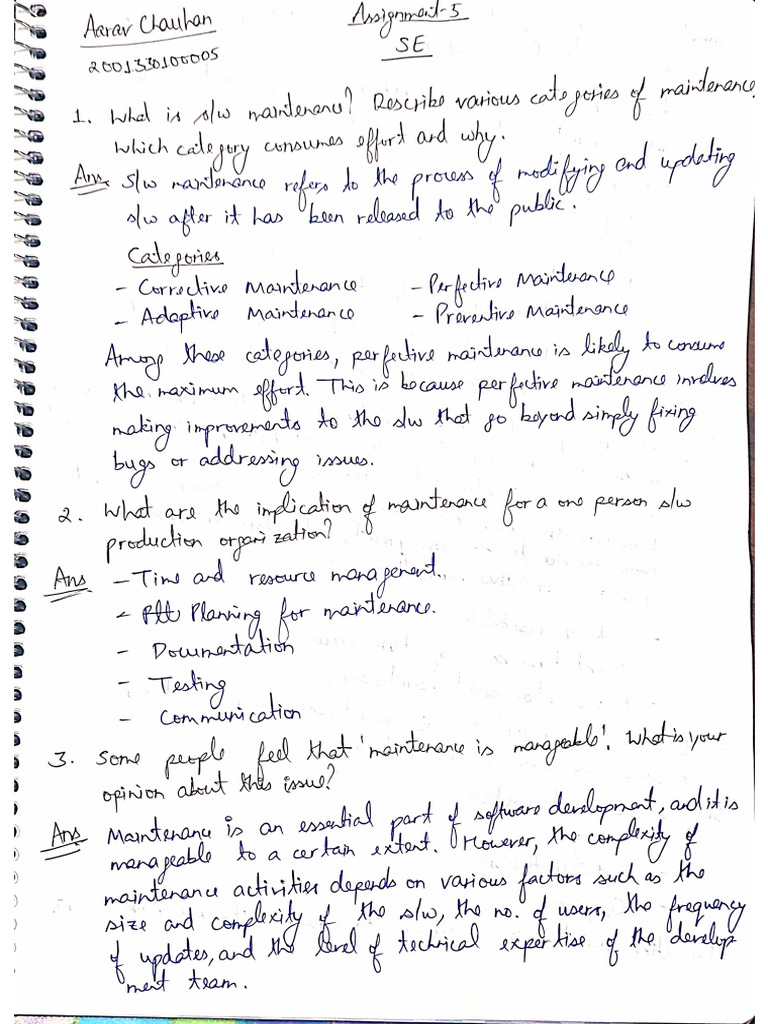 Aarav Chauhan
2001330100005
Assignment-5
SE
1. What is s/w maintenance? Describe various categories of maintenance.
Which category consumes effort and why.
Ans. S/w maintenance refers to the process of modifying and updating
s/w after it has been released to the public.
Categories
- Corrective Maintenance - Perfective Maintenance
- Adaptive Maintenance - Preventive Maintenance
Among these categories, perfective maintenance is likely to consume
the maximum effort. This is because perfective maintenance involves
making improvements to the s/w that go beyond simply fixing
bugs or addressing issues.
2. What are the implication of maintenance for a one person s/w
production organization?
Ans - Time and resource management.
- Planning for maintenance.
- Documentation
- Testing
- Communication
3. Some people feel that 'maintenance is manageable'. What is your
opinion about this issue?
Ans Maintenance is an essential part of software development, and it is
manageable to a certain extent. However, the complexity of
maintenance activities depends on various factors such as the
size and complexity of the s/w, the no. of users, the frequency
of updates, and the level of technical expertise of the develop
ment team.